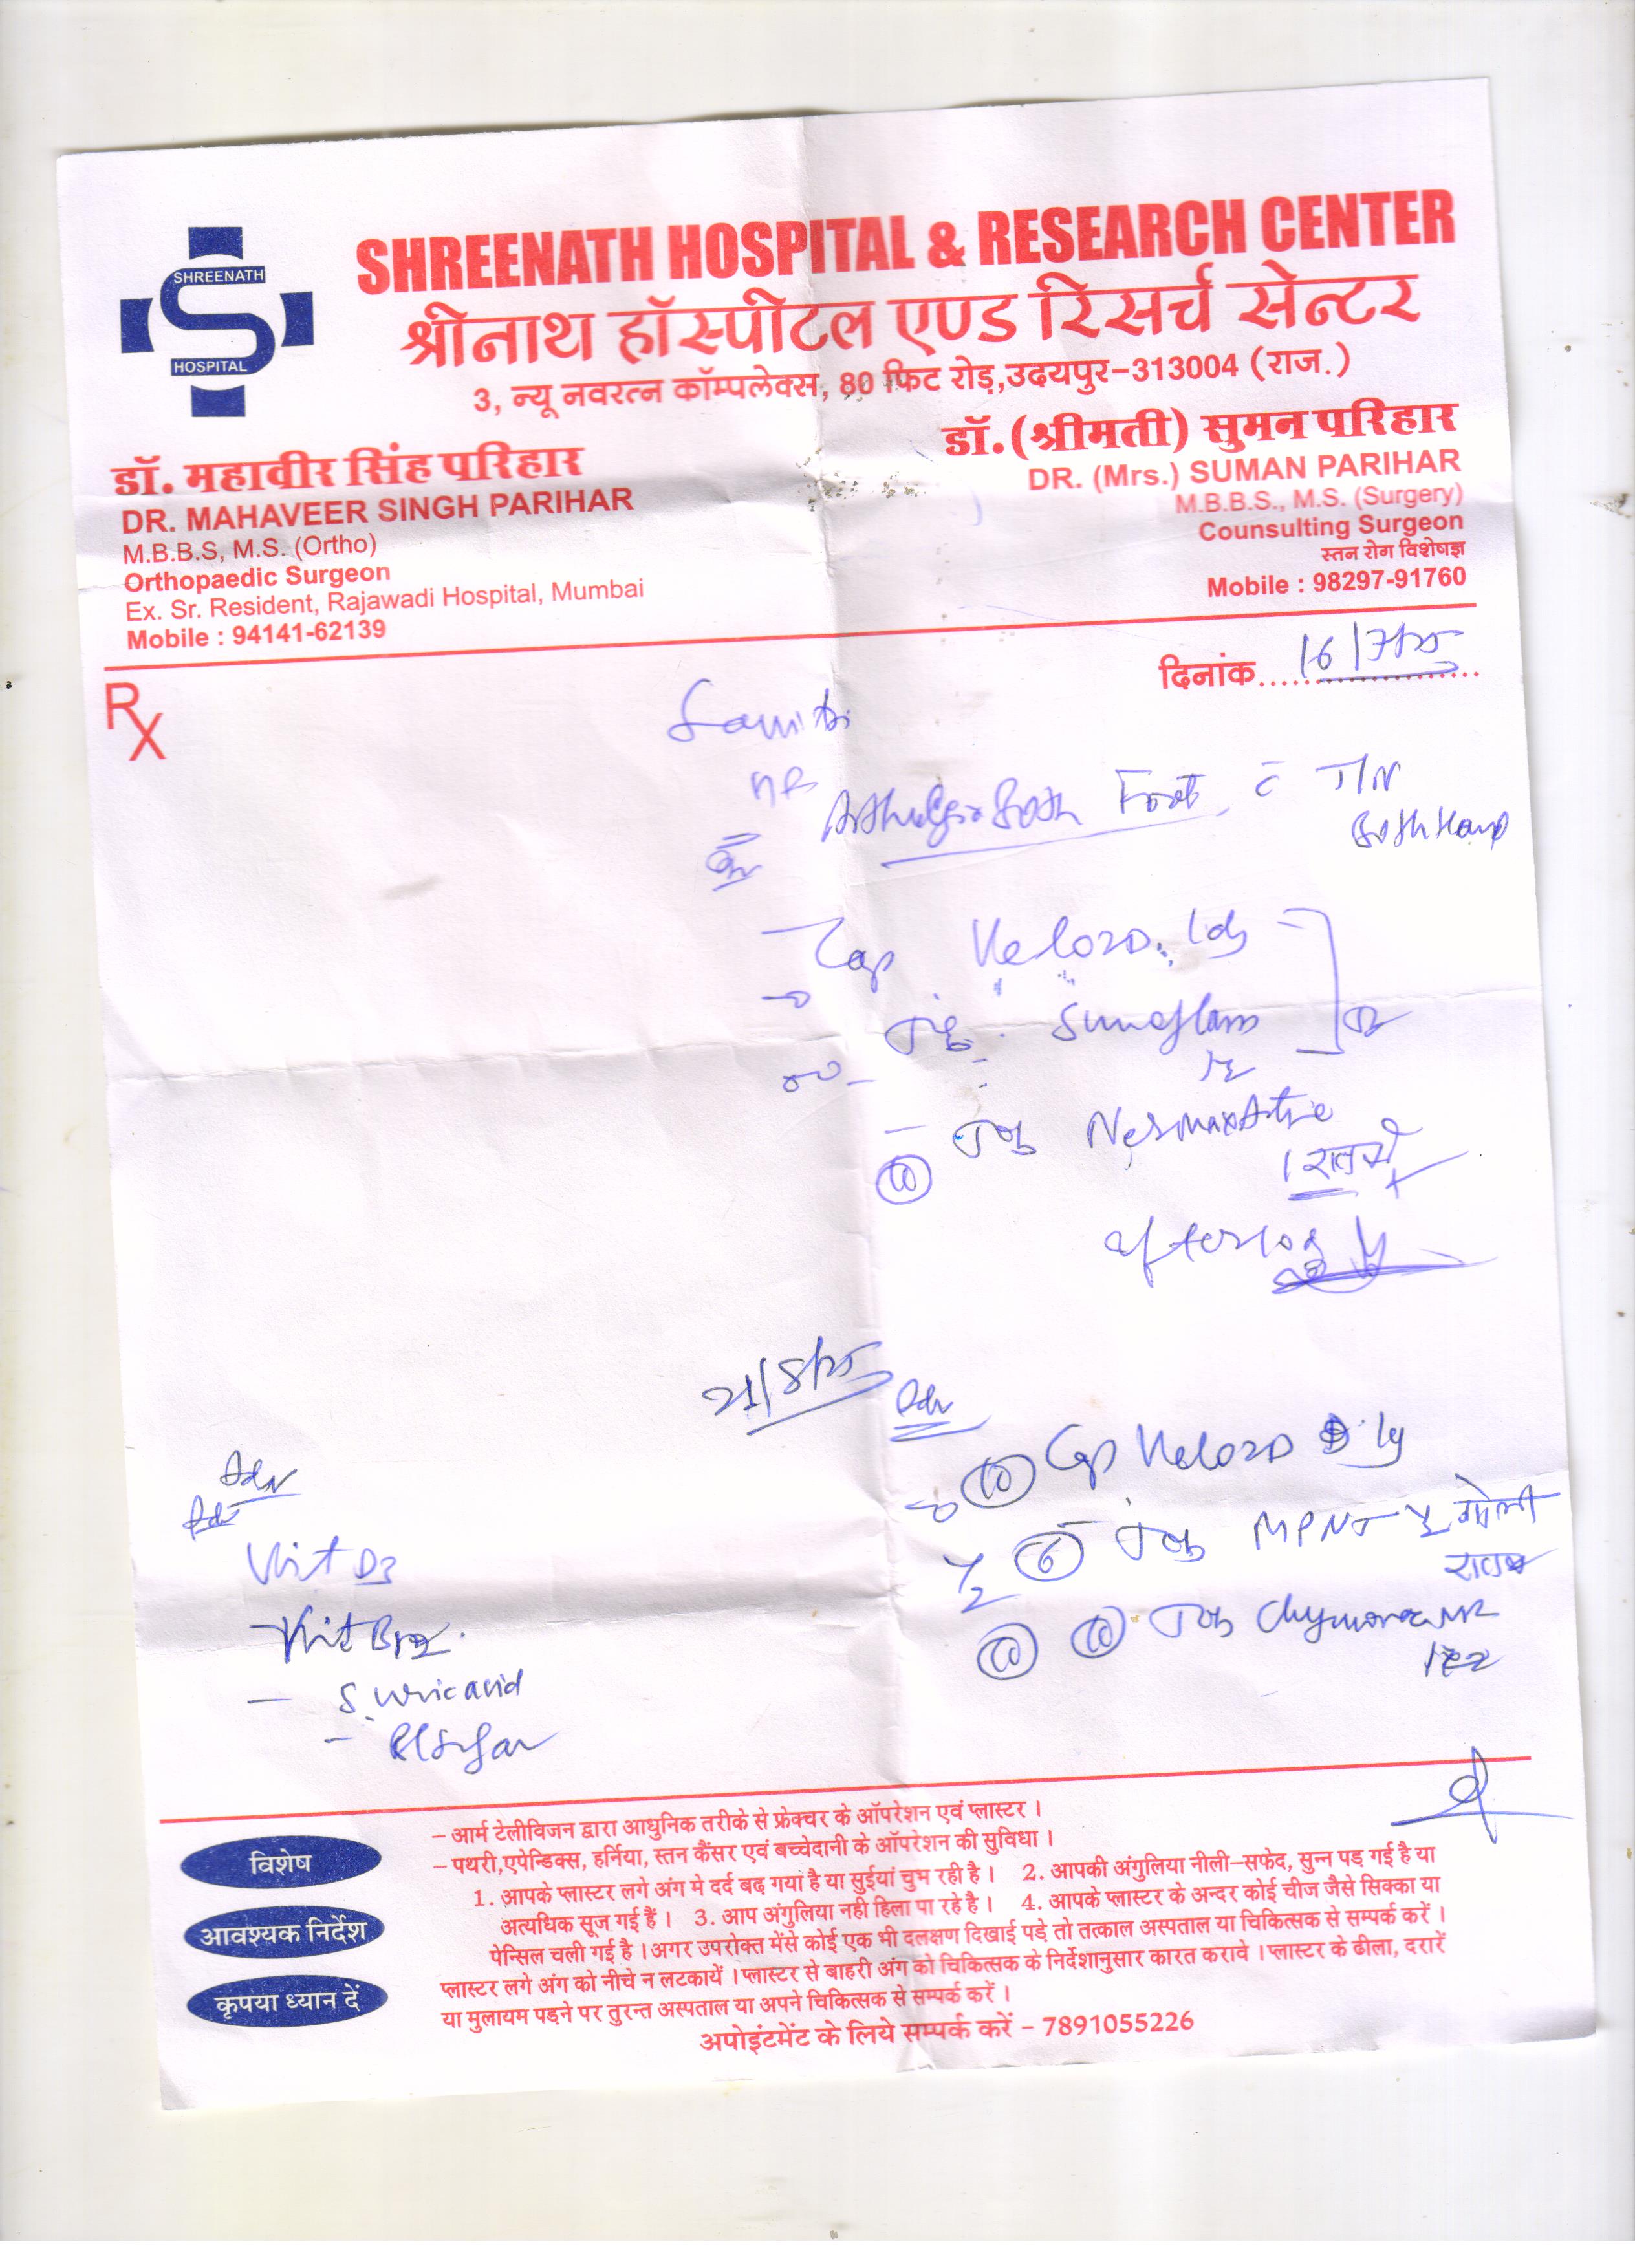 SHREENATH
HOSPITAL
SHREENATH HOSPITAL & RESEARCH CENTER
श्रीनाथ हॉस्पीटल एण्ड रिसर्च सेन्टर
3, न्यू नवरत्न कॉम्पलेक्स, 80 फिट रोड़,उदयपुर-313004 (राज.)
डॉ. महावीर सिंह परिहार
DR. MAHAVEER SINGH PARIHAR
M.B.B.S, M.S. (Ortho)
Orthopaedic Surgeon
Ex. Sr. Resident, Rajawadi Hospital, Mumbai
Mobile : 94141-62139
डॉ.(श्रीमती) सुमन परिहार
DR. (Mrs.) SUMAN PARIHAR
M.B.B.S., M.S. (Surgery)
Counsulting Surgeon
स्तन रोग विशेषज्ञ
Mobile : 98297-91760
दिनांक
Rx
Both Foot c T/N
Both Hand
Cap Velozo
Tab
Tab
1 रात में
after
Adv
10 Cap Velozo D
Tab MPNT गोली
10 Tab
Adv
Vit D3
Vit B12
- S. Uric acid
-
विशेष
- आर्म टेलीविजन द्वारा आधुनिक तरीके से फ्रेक्चर के ऑपरेशन एवं प्लास्टर ।
- पथरी,एपेन्डिक्स, हर्निया, स्तन कैंसर एवं बच्चेदानी के ऑपरेशन की सुविधा ।
आवश्यक निर्देश
1. आपके प्लास्टर लगे अंग मे दर्द बढ़ गया है या सुईयां चुभ रही है । 2. आपकी अंगुलिया नीली-सफेद, सुन्न पड़ गई है या
अत्यधिक सूज गई हैं । 3. आप अंगुलिया नही हिला पा रहे है । 4. आपके प्लास्टर के अन्दर कोई चीज जैसे सिक्का या
पेन्सिल चली गई है । अगर उपरोक्त मेंसे कोई एक भी दलक्षण दिखाई पड़े तो तत्काल अस्पताल या चिकित्सक से सम्पर्क करें ।
कृपया ध्यान दें
प्लास्टर लगे अंग को नीचे न लटकायें । प्लास्टर से बाहरी अंग को चिकित्सक के निर्देशानुसार कारत करावे । प्लास्टर के ढीला, दरारें
या मुलायम पड़ने पर तुरन्त अस्पताल या अपने चिकित्सक से सम्पर्क करें ।
अपोइंटमेंट के लिये सम्पर्क करें - 7891055226